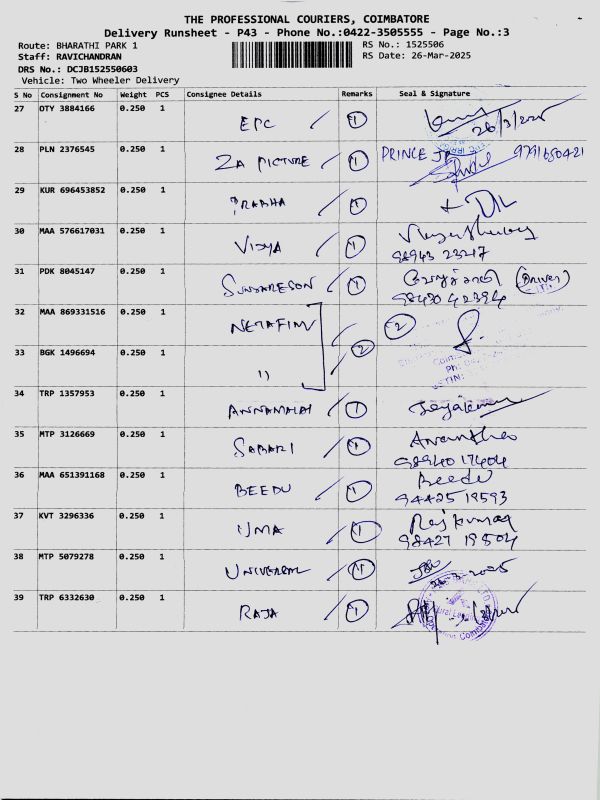 THE PROFESSIONAL COURIERS, COIMBATORE
Delivery Runsheet - P43 - Phone No.:0422-3505555 - Page No.:3
Route: BHARATHI PARK 1 RS No.: 1525506
Staff: RAVICHANDRAN RS Date: 26-Mar-2025
DRS No.: DCJB152550603
Vehicle: Two Wheeler Delivery
S No Consignment No Weight PCS Consignee Details Remarks Seal & Signature
27 OTY 3884166 0.250 1 EPC 1 26/3/2025
28 PLN 2376545 0.250 1 2A PICTURE 1 PRINCE 9791650421
29 KUR 696453852 0.250 1 PRABHA 1
30 MAA 576617031 0.250 1 VIDYA 1
98943 23217
31 PDK 8045147 0.250 1 SUNDARESON 1 (Driver)
98430 42394
32 MAA 869331516 0.250 1 NETAFIM 2 2
33 BGK 1496694 0.250 1 "
34 TRP 1357953 0.250 1 ANNAMALAI 1 Jeyakumar
35 MTP 3126669 0.250 1 SABARI 1
98940 17404
36 MAA 651391168 0.250 1 BEEDU 1 Beedu
94425 19593
37 KVT 3296336 0.250 1 UMA 1 Rajkumar
98427 19504
38 MTP 5079278 0.250 1 UNIVERSAL 1
39 TRP 6332630 0.250 1 RAJA 1